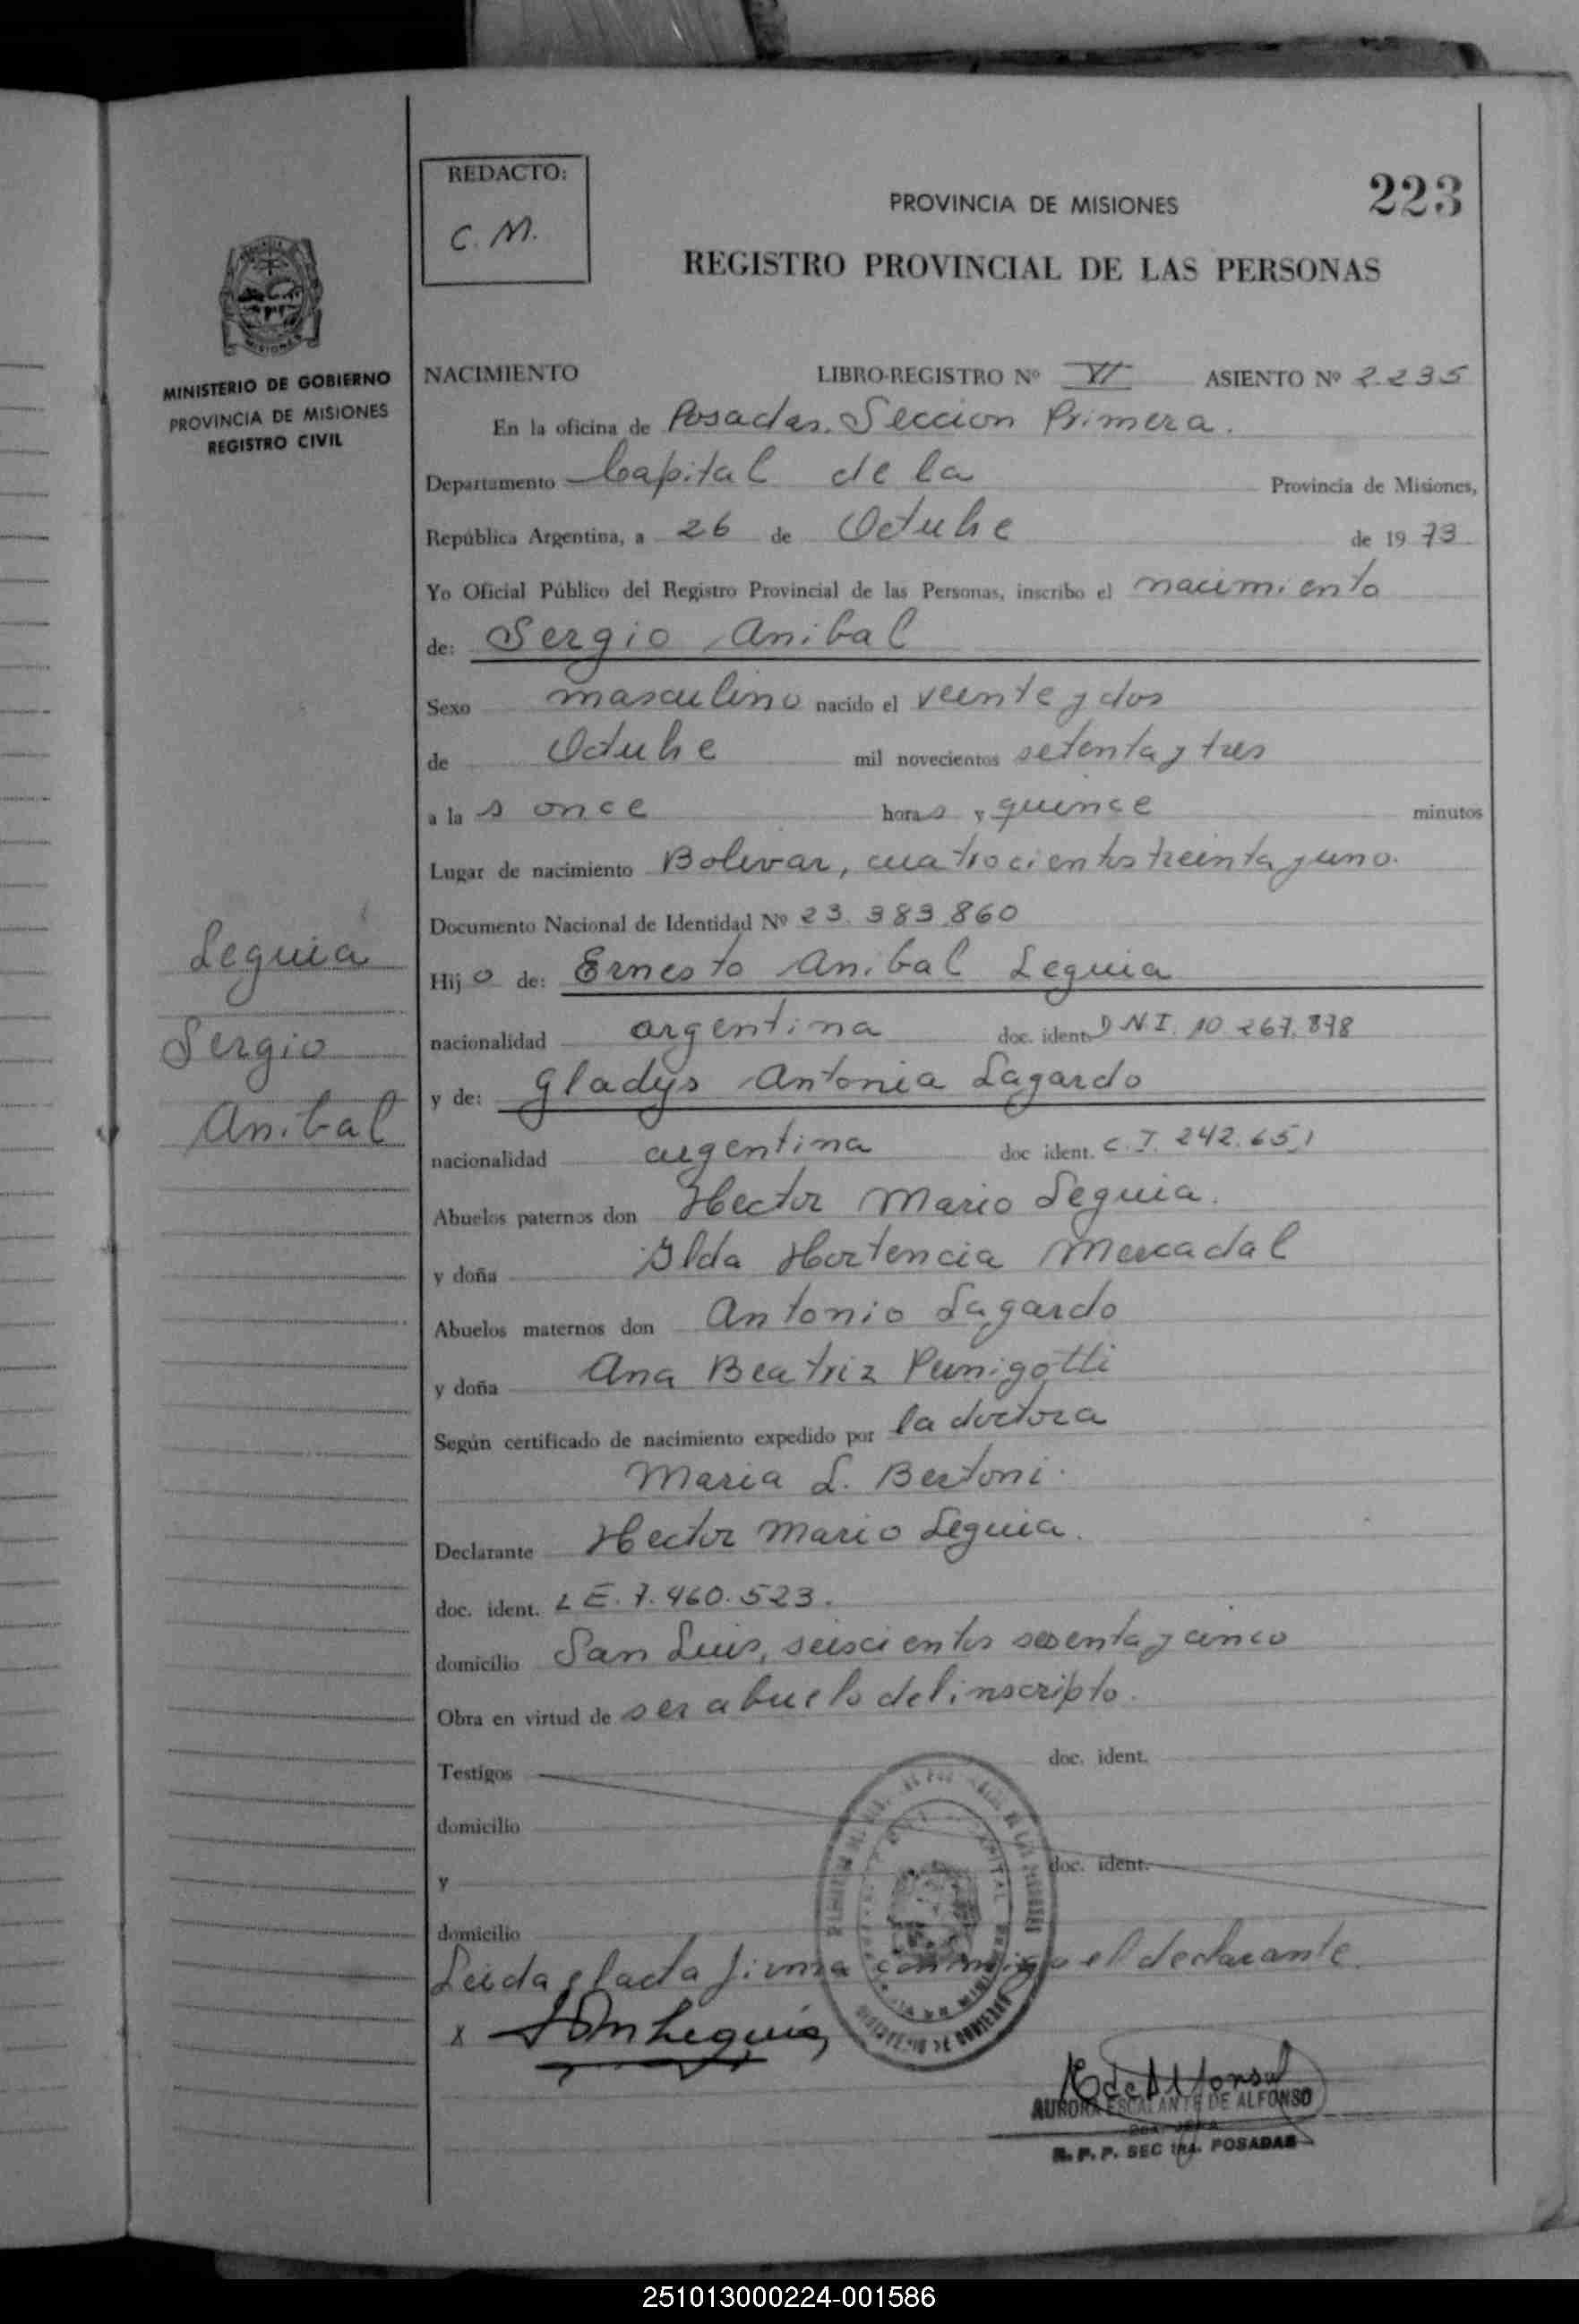 REDACTO:
C. M.
PROVINCIA DE MISIONES
223
REGISTRO PROVINCIAL DE LAS PERSONAS
MINISTERIO DE GOBIERNO
PROVINCIA DE MISIONES
REGISTRO CIVIL
NACIMIENTO LIBRO-REGISTRO Nº VI ASIENTO Nº 2.235
En la oficina de Posadas. Seccion Primera.
Departamento Capital de la Provincia de Misiones,
República Argentina, a 26 de Octubre de 1973
Yo Oficial Público del Registro Provincial de las Personas, inscribo el nacimiento
de: Sergio Anibal
Sexo masculino nacido el veinte y dos
de Octubre mil novecientos setenta y tres
a la s once horas y quince minutos
Lugar de nacimiento Bolivar, cuatrocientos treinta y uno.
Documento Nacional de Identidad Nº 23.383.860
Leguia
Sergio
Anibal
Hijo de: Ernesto Anibal Leguia
nacionalidad argentina doc. ident. D N I. 10.267.878
y de: Gladys Antonia Lagardo
nacionalidad argentina doc ident. C. I. 242.651
Abuelos paternos don Hector Mario Leguia.
y doña Ilda Hortencia Mercadal
Abuelos maternos don Antonio Lagardo
y doña Ana Beatriz
Según certificado de nacimiento expedido por la doctora
Maria L. Bertoni.
Declarante Hector Mario Leguia.
doc. ident. L E. 7.460.523.
domicilio San Luis, seiscientos sesenta y cinco
Obra en virtud de ser abuelo del inscripto.
Testigos doc. ident.
domicilio
y doc. ident.
domicilio
Leida el acta firma conmigo el declarante.
x Leguia
AURORA ESCALANTE DE ALFONSO
R. P. P. SEC 1ra. POSADAS
251013000224-001586